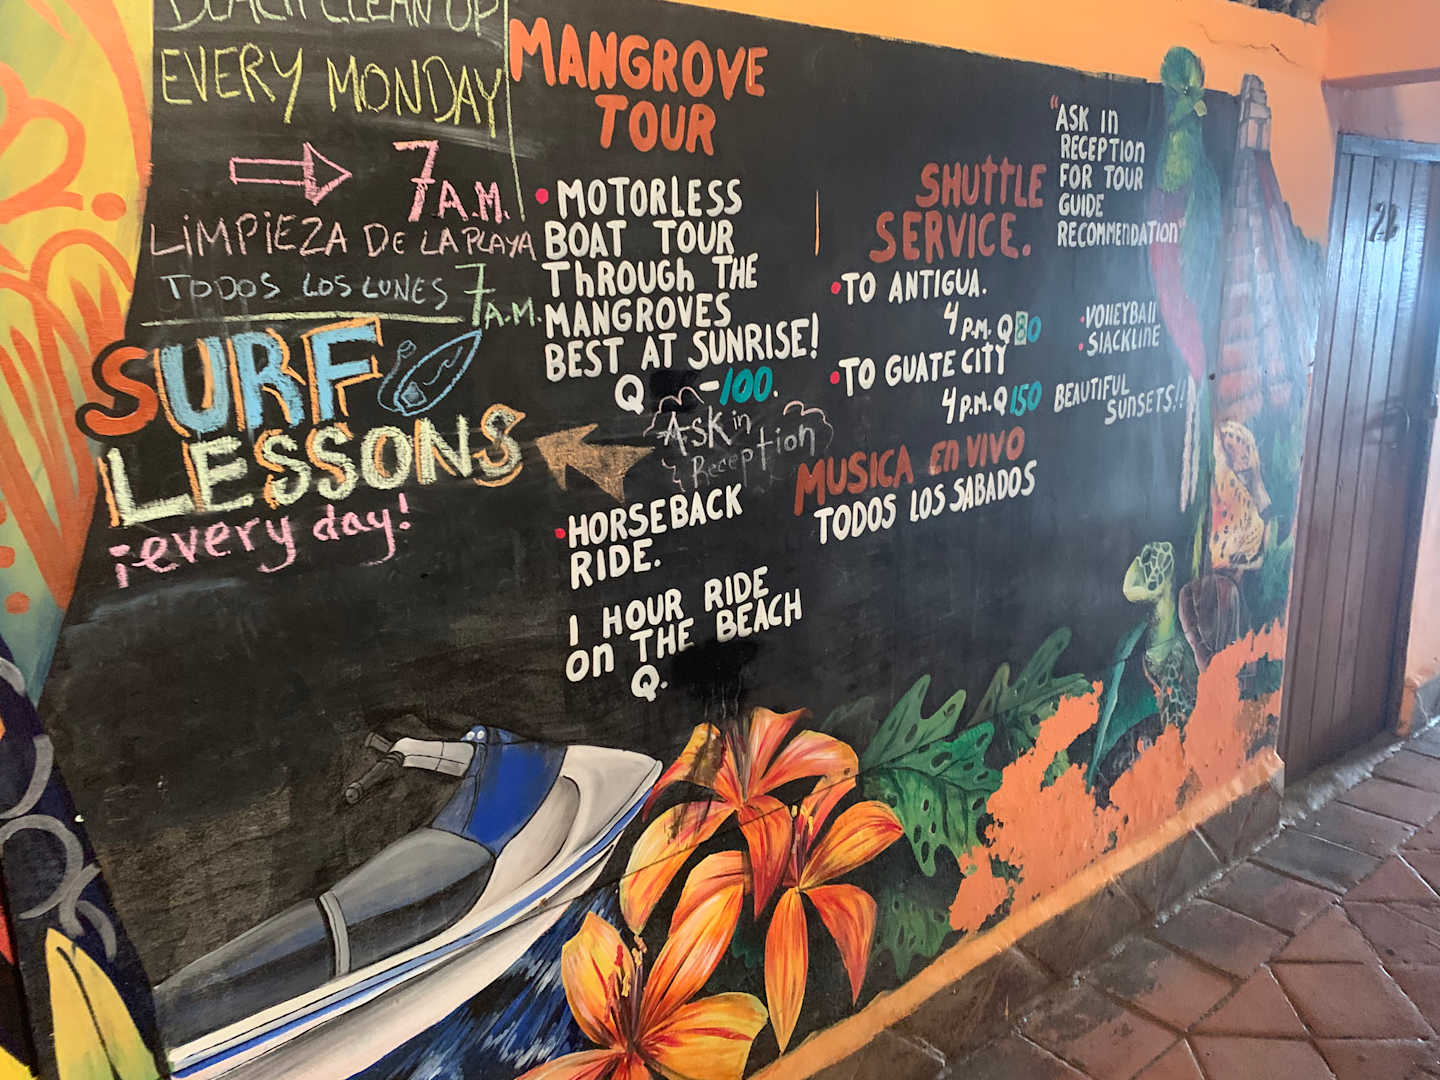 BEACH CLEAN UP
EVERY MONDAY
7 A.M.
LIMPIEZA DE LA PLAYA
TODOS LOS LUNES 7 A.M.
SURF
LESSONS
¡every day!
MANGROVE
TOUR
MOTORLESS
BOAT TOUR
THROUGH THE
MANGROVES
BEST AT SUNRISE!
Q -100.
Ask in
Reception
HORSEBACK
RIDE.
1 HOUR RIDE
on THE BEACH
Q.
SHUTTLE
SERVICE.
TO ANTIGUA.
4 P.M. Q80
TO GUATE CITY
4 P.M. Q150
MUSICA EN VIVO
TODOS LOS SABADOS
"ASK in
RECEPTION
FOR TOUR
GUIDE
RECOMMENDATION"
VOLLEYBALL
SLACKLINE
BEAUTIFUL
SUNSETS!!
22